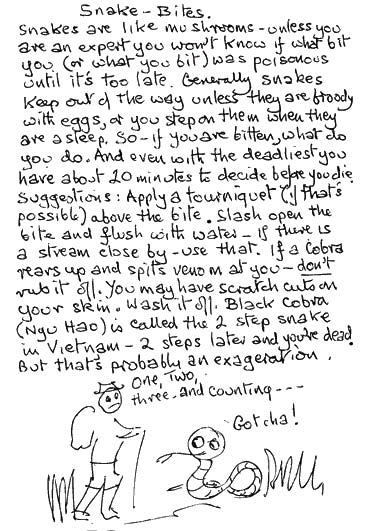 Snake-Bites.
Snakes are like mushrooms - unless you
are an expert you won't know if what bit
you (or what you bit) was poisonous
until it's too late. Generally snakes
keep out of the way unless they are broody
with eggs, or you step on them when they
are asleep. So - if you are bitten, what do
you do. And even with the deadliest you
have about 20 minutes to decide before you die.
Suggestions: Apply a tourniquet (if that's
possible) above the bite. Slash open the
bite and flush with water - if there is
a stream close by - use that. If a Cobra
rears up and spits venom at you - don't
rub it off. You may have scratch cuts on
your skin. Wash it off. Black Cobra
(Ngu Hao) is called the 2 step snake
in Vietnam - 2 steps later and you're dead.
But that's probably an exageration.
One, Two,
three - and counting ---
Gotcha!